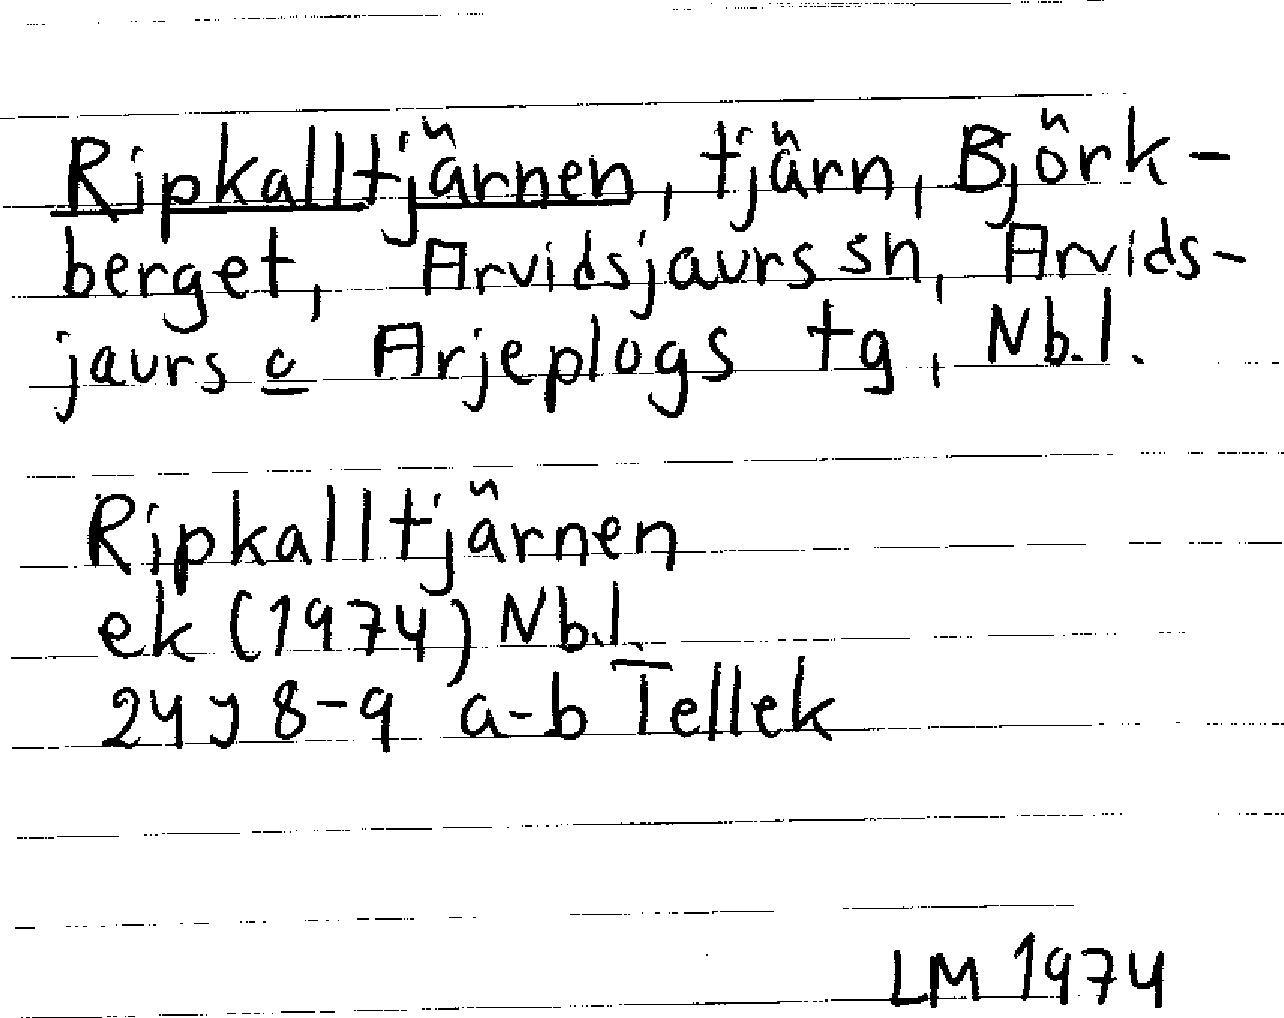 Ripkalltjärnen, tjärn, Björk-
berget, Arvidsjaurs sn, Arvids-
jaurs o Arjeplogs tg, Nb.l.
Ripkalltjärnen
ek (1974) Nb.l.
24 J 8-9 a-b Tellek
LM 1974